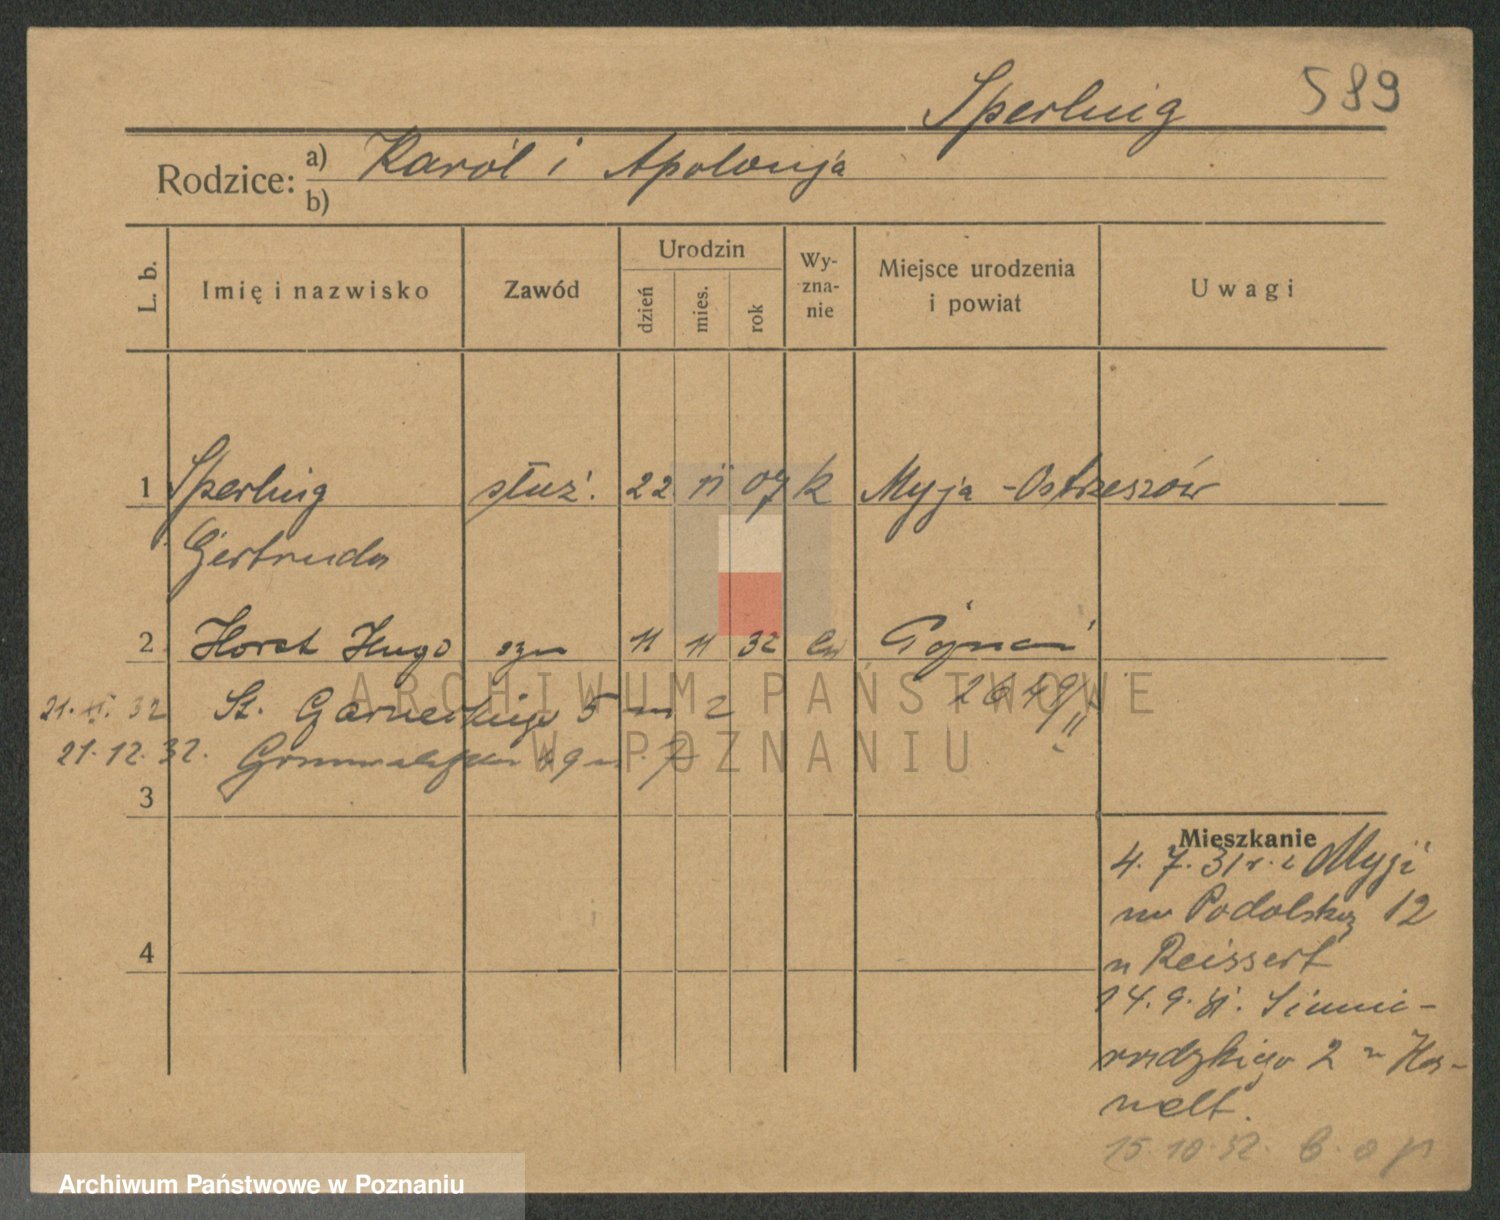 Sperling 589
Rodzice: a) Karól i Apolonja
b)
L. b. Imię i nazwisko Zawód Urodzin dzień mies. rok Wy-zna-nie Miejsce urodzenia i powiat Uwagi
1 Sperling służ. 22 11 07 k Myja - Ostrzeszów
Gertruda
2 Horst Hugo syn 11 11 32 Poznań
21. 11. 32 St. Garncarskiego 5 m 2 2649/II
21. 12. 32. Grunwaldzka 49 m. 7
3
4
Mieszkanie
4. 7. 31 r. z Myji
na Podolską 12
u Reissert
14. 9. 31. Siemi-
radzkiego 2 u Ha-
nelt.
15. 10. 32.
ARCHIWUM PAŃSTWOWE
W POZNANIU
Archiwum Państwowe w Poznaniu